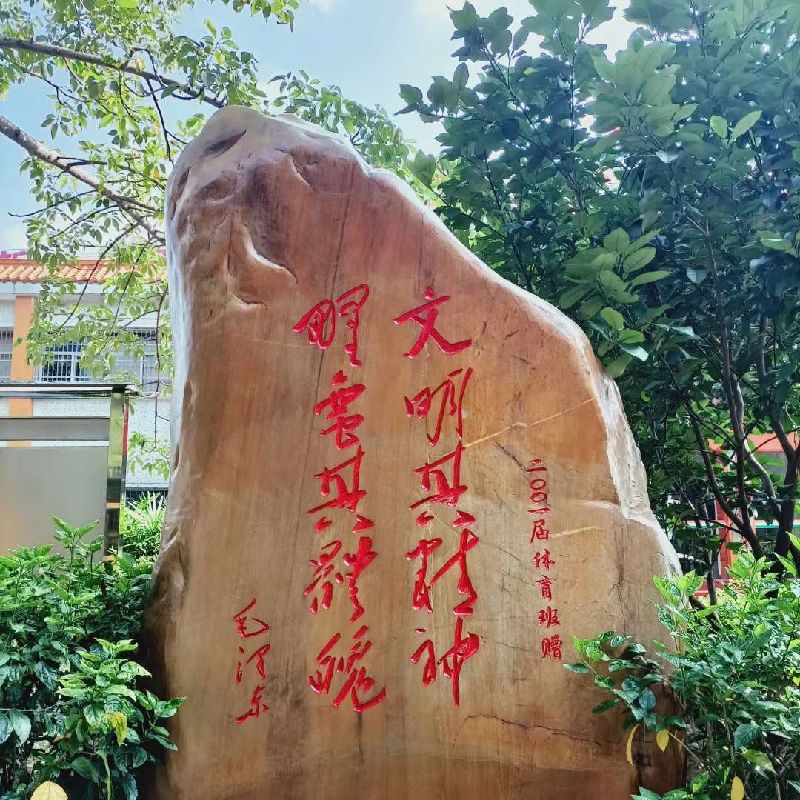 二〇〇一届体育班赠
文明其精神
野蛮其體魄
毛泽东